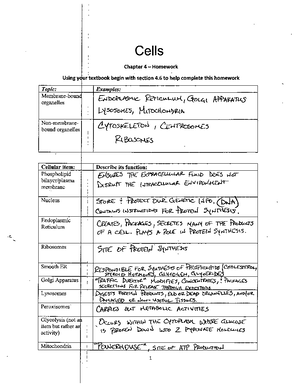 Cells
Chapter 4 – Homework
Using your textbook begin with section 4.6 to help complete this homework
Topic: Examples:
Membrane-bound organelles
ENDOPLASMIC RETICULUM, GOLGI APPARATUS
LYSOSOMES, MITOCHONDRIA
Non-membrane-bound organelles
CYTOSKELETON, CENTROSOMES
RIBOSOMES
Cellular item: Describe its function:
Phospholipid bilayer/plasma membrane
ENSURES THE EXTRACELLULAR FLUID DOES NOT
DISRUPT THE INTRACELLULAR ENVIRONMENT
Nucleus
STORE & PROTECT OUR GENETIC INFO. (DNA)
CONTAINS INSTRUCTIONS FOR PROTEIN SYNTHESIS.
Endoplasmic Reticulum
CREATES, PACKAGES, SECRETES MANY OF THE PRODUCTS
OF A CELL. PLAYS A ROLE IN PROTEIN SYNTHESIS.
Ribosomes
SITE OF PROTEIN SYNTHESIS
Smooth ER
RESPONSIBLE FOR SYNTHESIS OF PHOSPHOLIPIDS, CHOLESTEROL,
STEROID HORMONES, GLYCOGEN,
Golgi Apparatus
"TRAFFIC DIRECTOR" MODIFIES, CONCENTRATES, & PACKAGES
Lysosomes
DIGESTS PROTEINS, OLD OR DEAD ORGANELLES, AND/OR
DAMAGED OR TISSUES.
Peroxisomes
CARRIES OUT METABOLIC ACTIVITIES
Glycolysis (not an item but rather an activity)
OCCURS WITHIN THE CYTOPLASM WHERE GLUCOSE
IS BROKEN DOWN INTO 2 PYRUVATE MOLECULES
Mitochondria
"POWERHOUSE", SITE OF ATP PRODUCTION
1